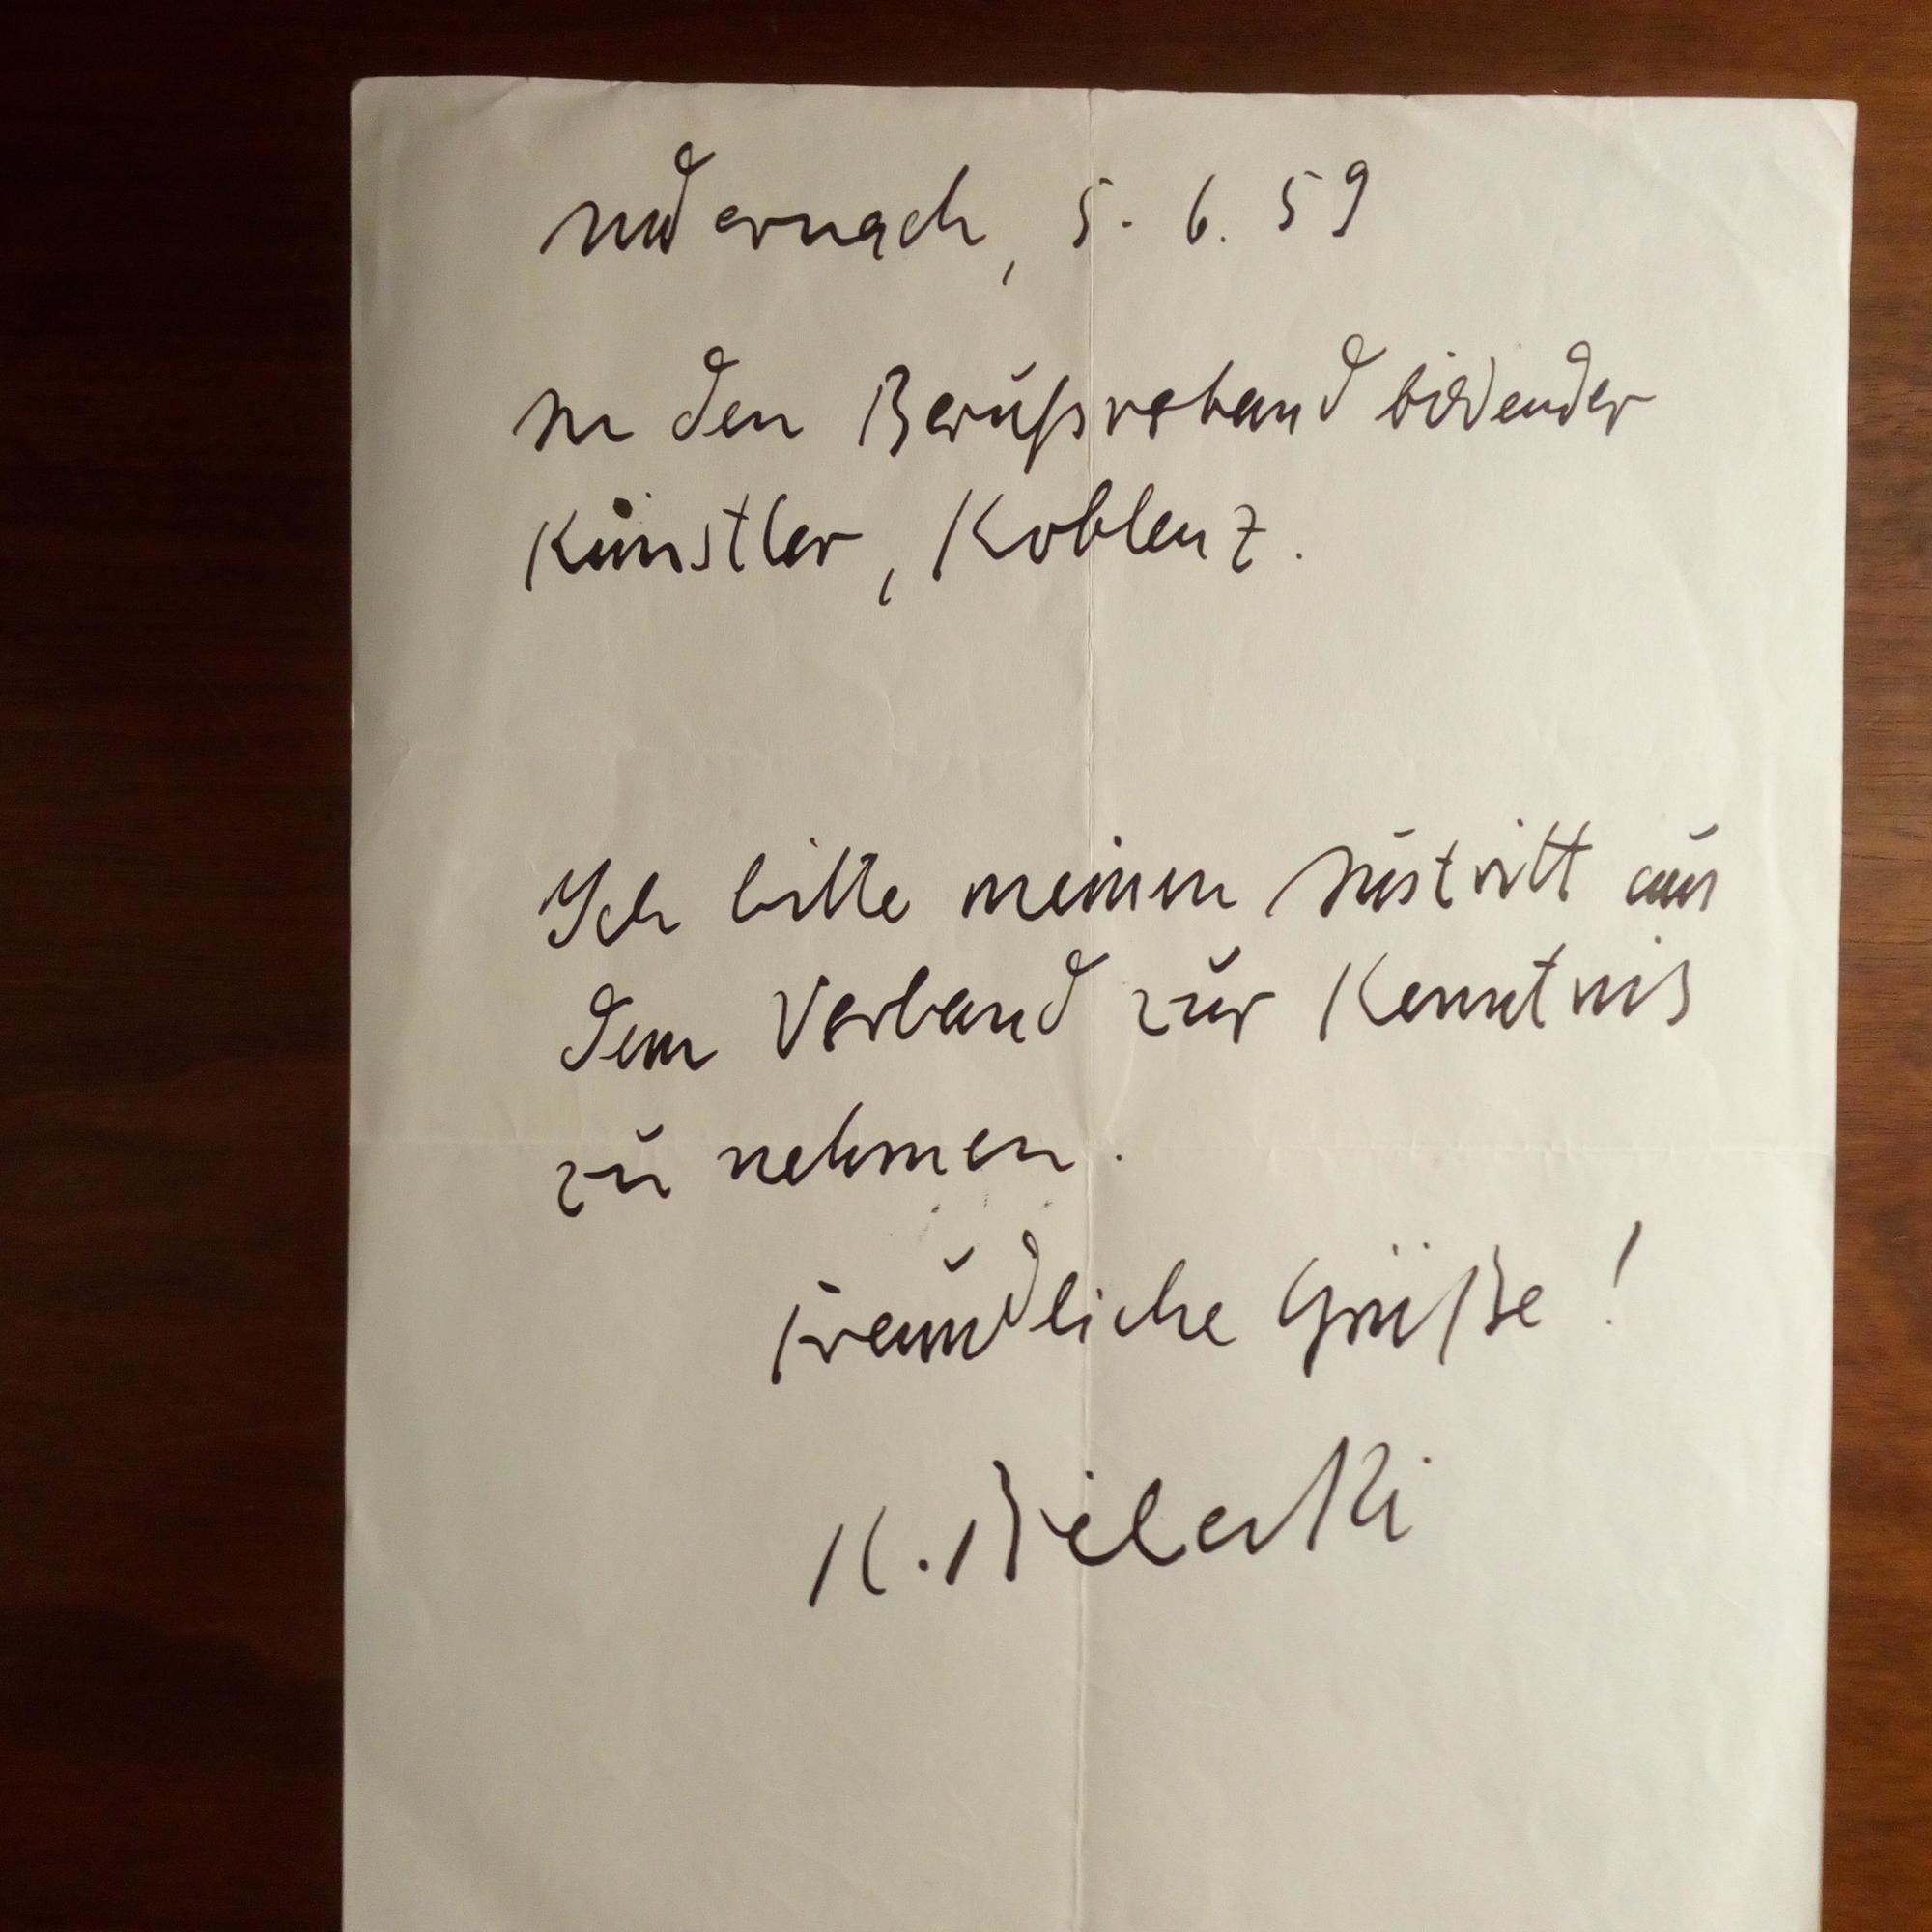 Andernach, 5. 6. 59
An den Berufsverband bildender
Künstler, Koblenz.
Ich bitte meinen Austritt aus
dem Verband zur Kenntnis
zu nehmen.
Freundliche Grüße!
K.